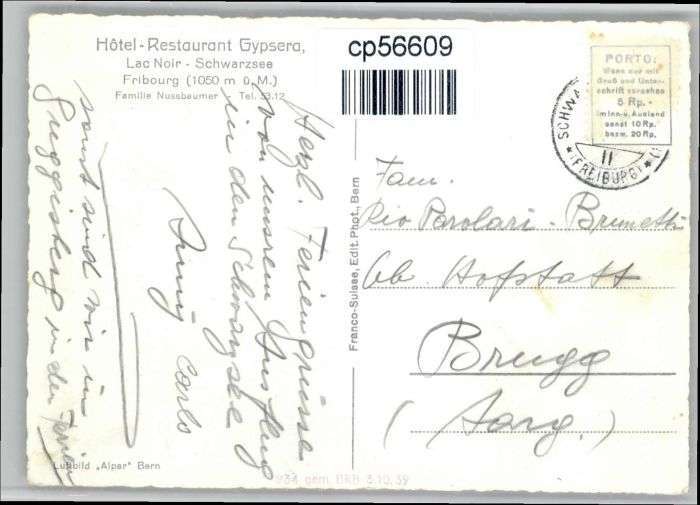 Hôtel-Restaurant Gypsera,
Lac Noir - Schwarzsee
Fribourg (1050 m ü.M.)
Familie Nussbaumer - Tel. 33.12
cp56609
PORTO:
Wenn nur mit
Gruß und Unter-
schrift versehen
5 Rp. -
im Inn- u. Ausland
sonst 10 Rp.
bezw. 20 Rp.
SCHWA
II
(FREIBURG)
Herzl. Feriengrüsse
von unsrem Ausflug
in den Schwarzsee
Anny Carlo
sonst sind wir in
Guggisberg in den Ferien
Fam.
Rio Parolari - Brunetti
Ob. Hofstatt
Brugg
(Aarg.)
Franco-Suisse, Edit. Phot., Bern
Luftbild „Alpar" Bern
934 gem. BRB 3.10.39